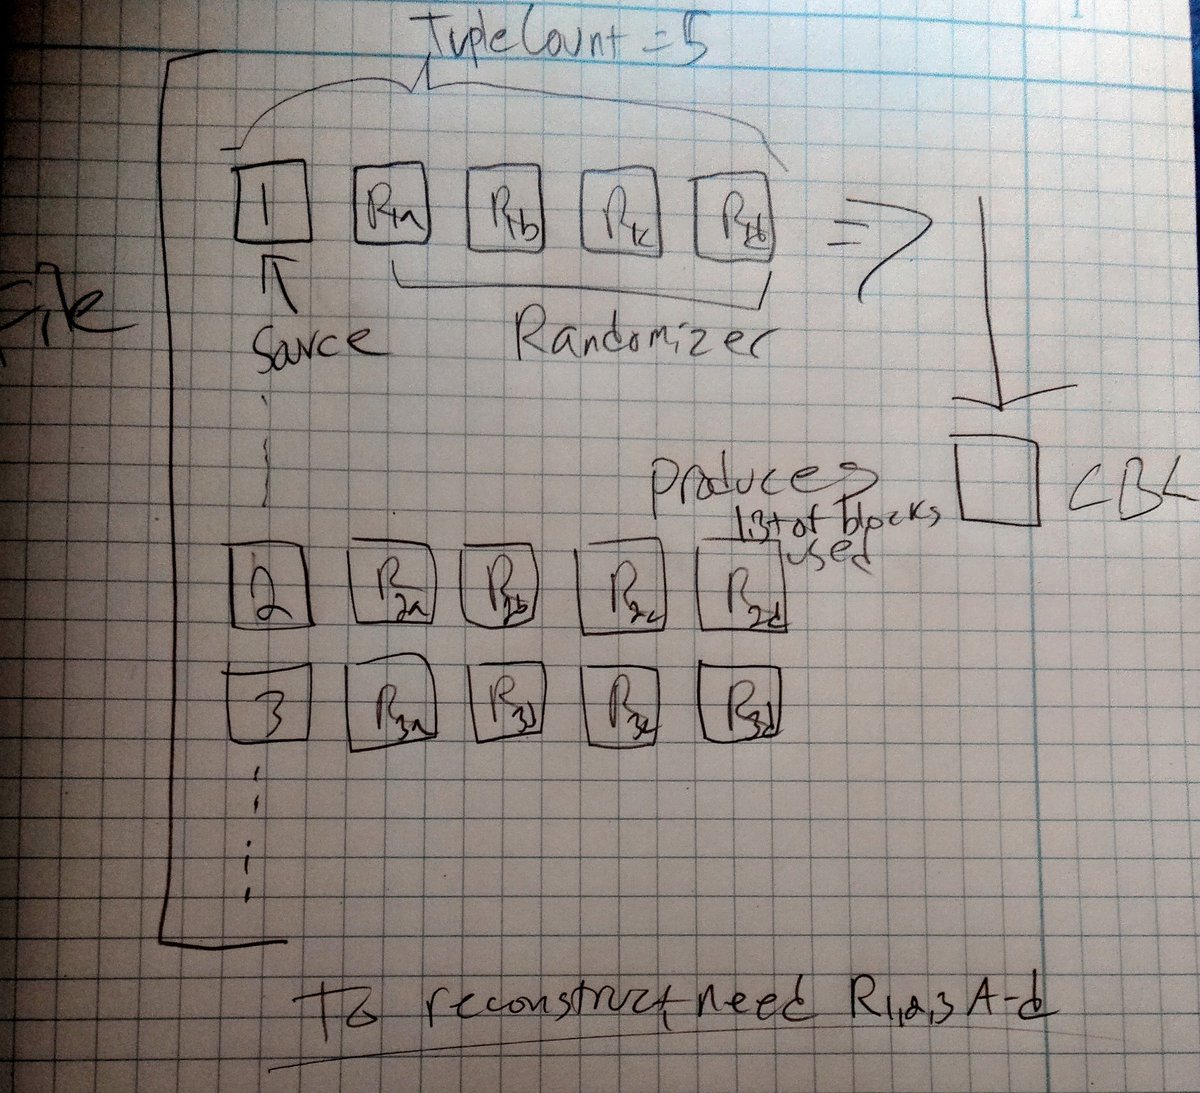 TupleCount = 5
1 R1a R1b R1c R1d
File
Source Randomizer
produces
list of blocks
used
CBL
2 R2a R2b R2c R2d
3 R3a R3b R3c R3d
To reconstruct need R1,2,3 A-d